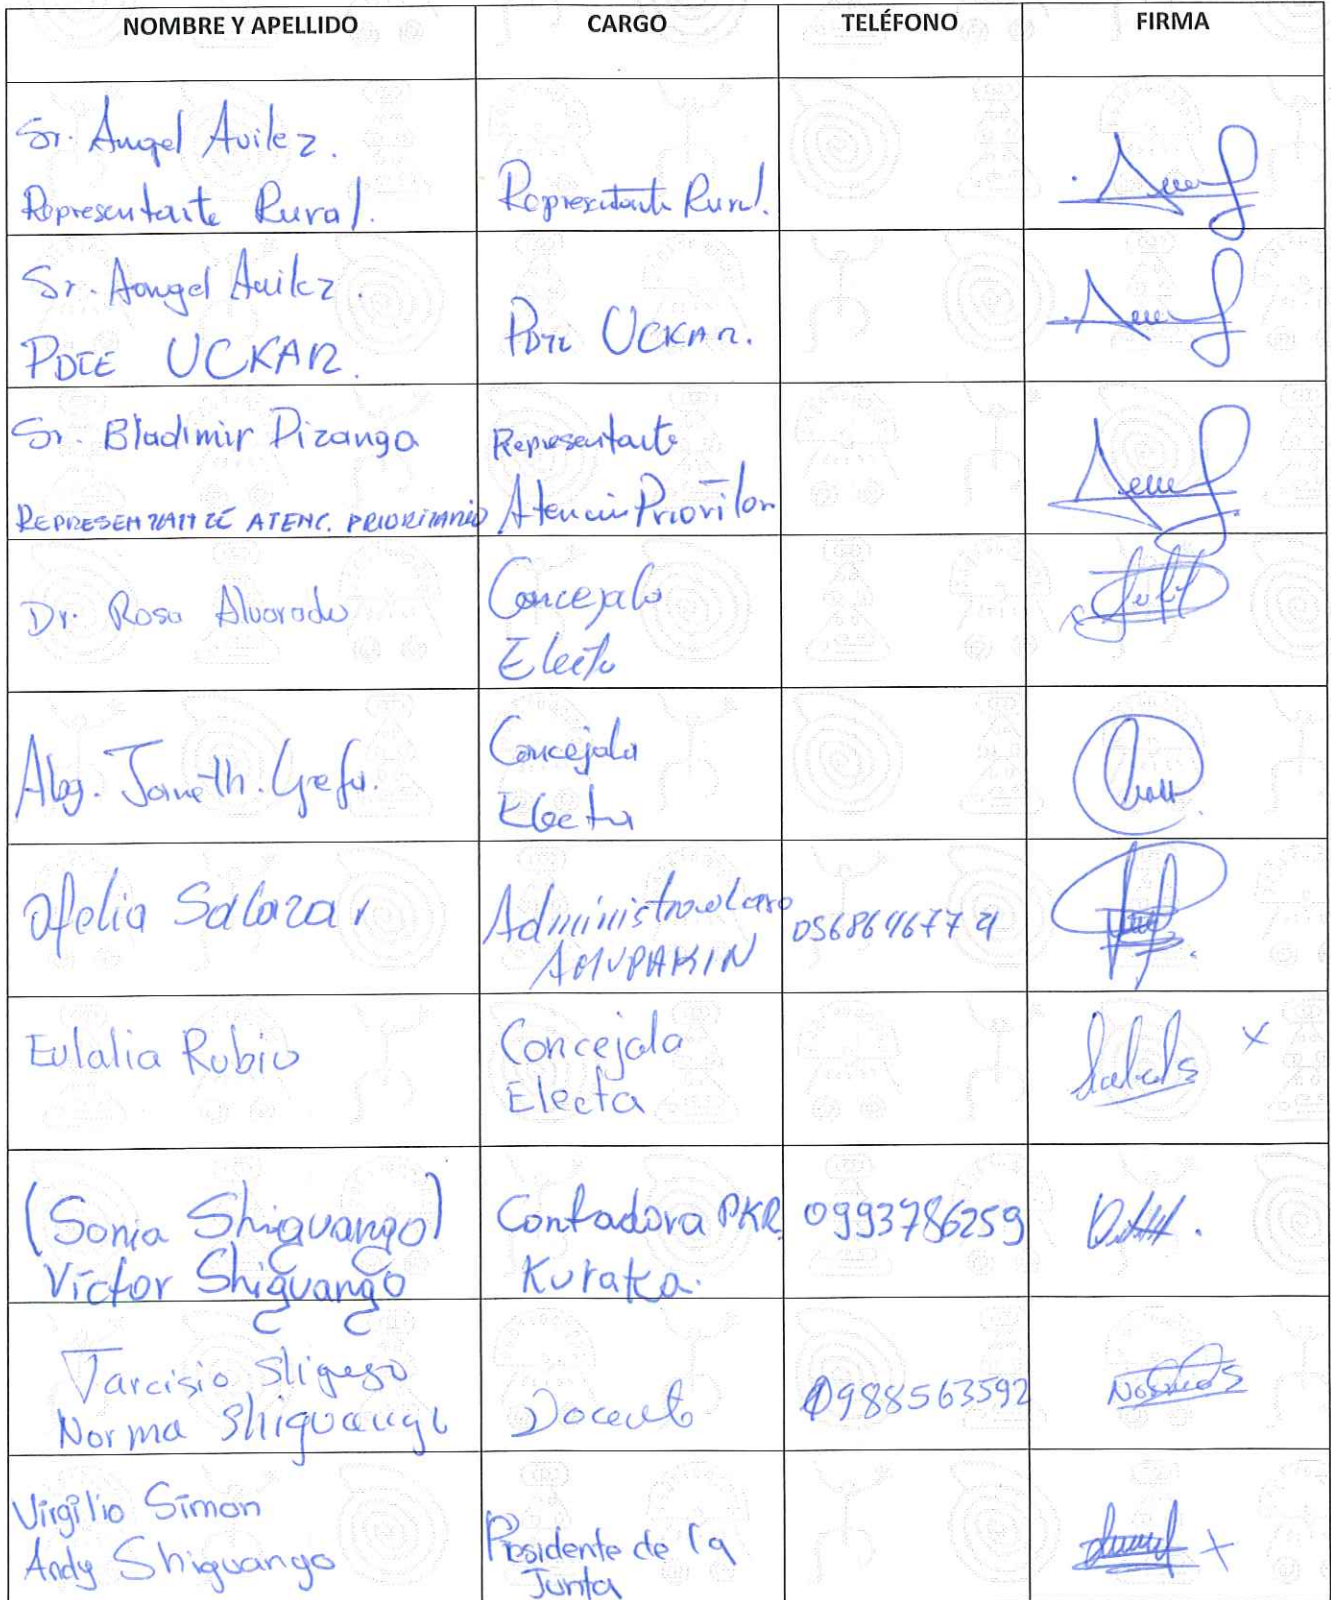 NOMBRE Y APELLIDO CARGO TELÉFONO FIRMA
Sr. Angel Avilez.
Representante Rural. Representante Rural.
Sr. Aangel Avilez.
PDTE UCKAR. PDTE UCKAR.
Sr. Bladimir Dizango Representante
REPRESENTANTE ATENC. PRIORITARIO Atención
Dr. Rosa Alvarado Concejala
Electa
Abg. Janeth. Grefa. Concejala
Electa
Ofelia Salazar Administradora
AMUPAKIN
Eulalia Rubio Concejala
Electa
(Sonia Shiguango) Contadora PKR 0993786259
Víctor Shiguango Kuraka.
Tarcisio
Norma Shiguango Docente 0988563592
Virgilio Simon
Andy Shiguango Presidente de la
Junta